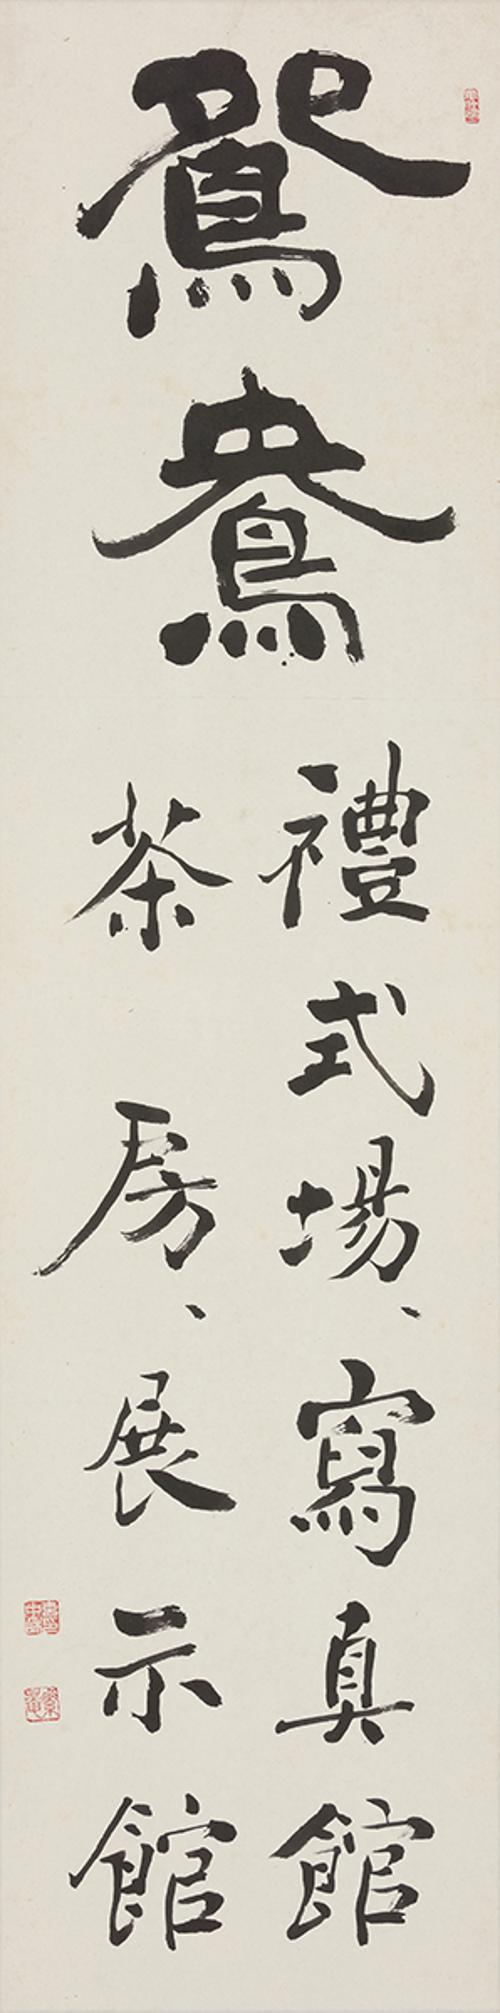 鴛鴦
禮式場、寫真館
茶房、展示館